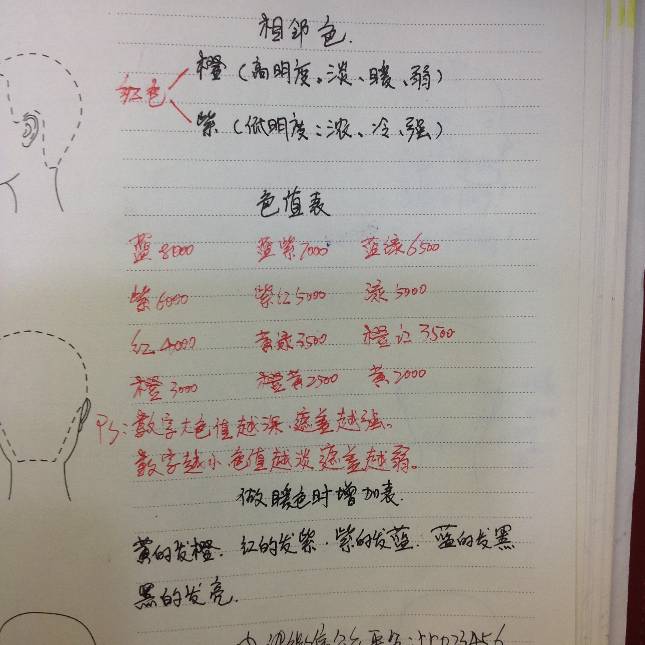 相邻色.
橙(高明度。淡、暖、弱)
红色
紫(低明度:浓、冷、强)
色值表
蓝8000 蓝紫7000 蓝绿6500
紫6000 紫红5000 绿5000
红4000 黄绿3500 橙红3500
橙3000 橙黄2500 黄2000
PS:数字大色值越深.遮盖越强。
数字越小.色值越淡.遮盖越弱。
做暖色时增加表.
黄的发橙. 红的发紫. 紫的发蓝. 蓝的发黑
黑的发亮.